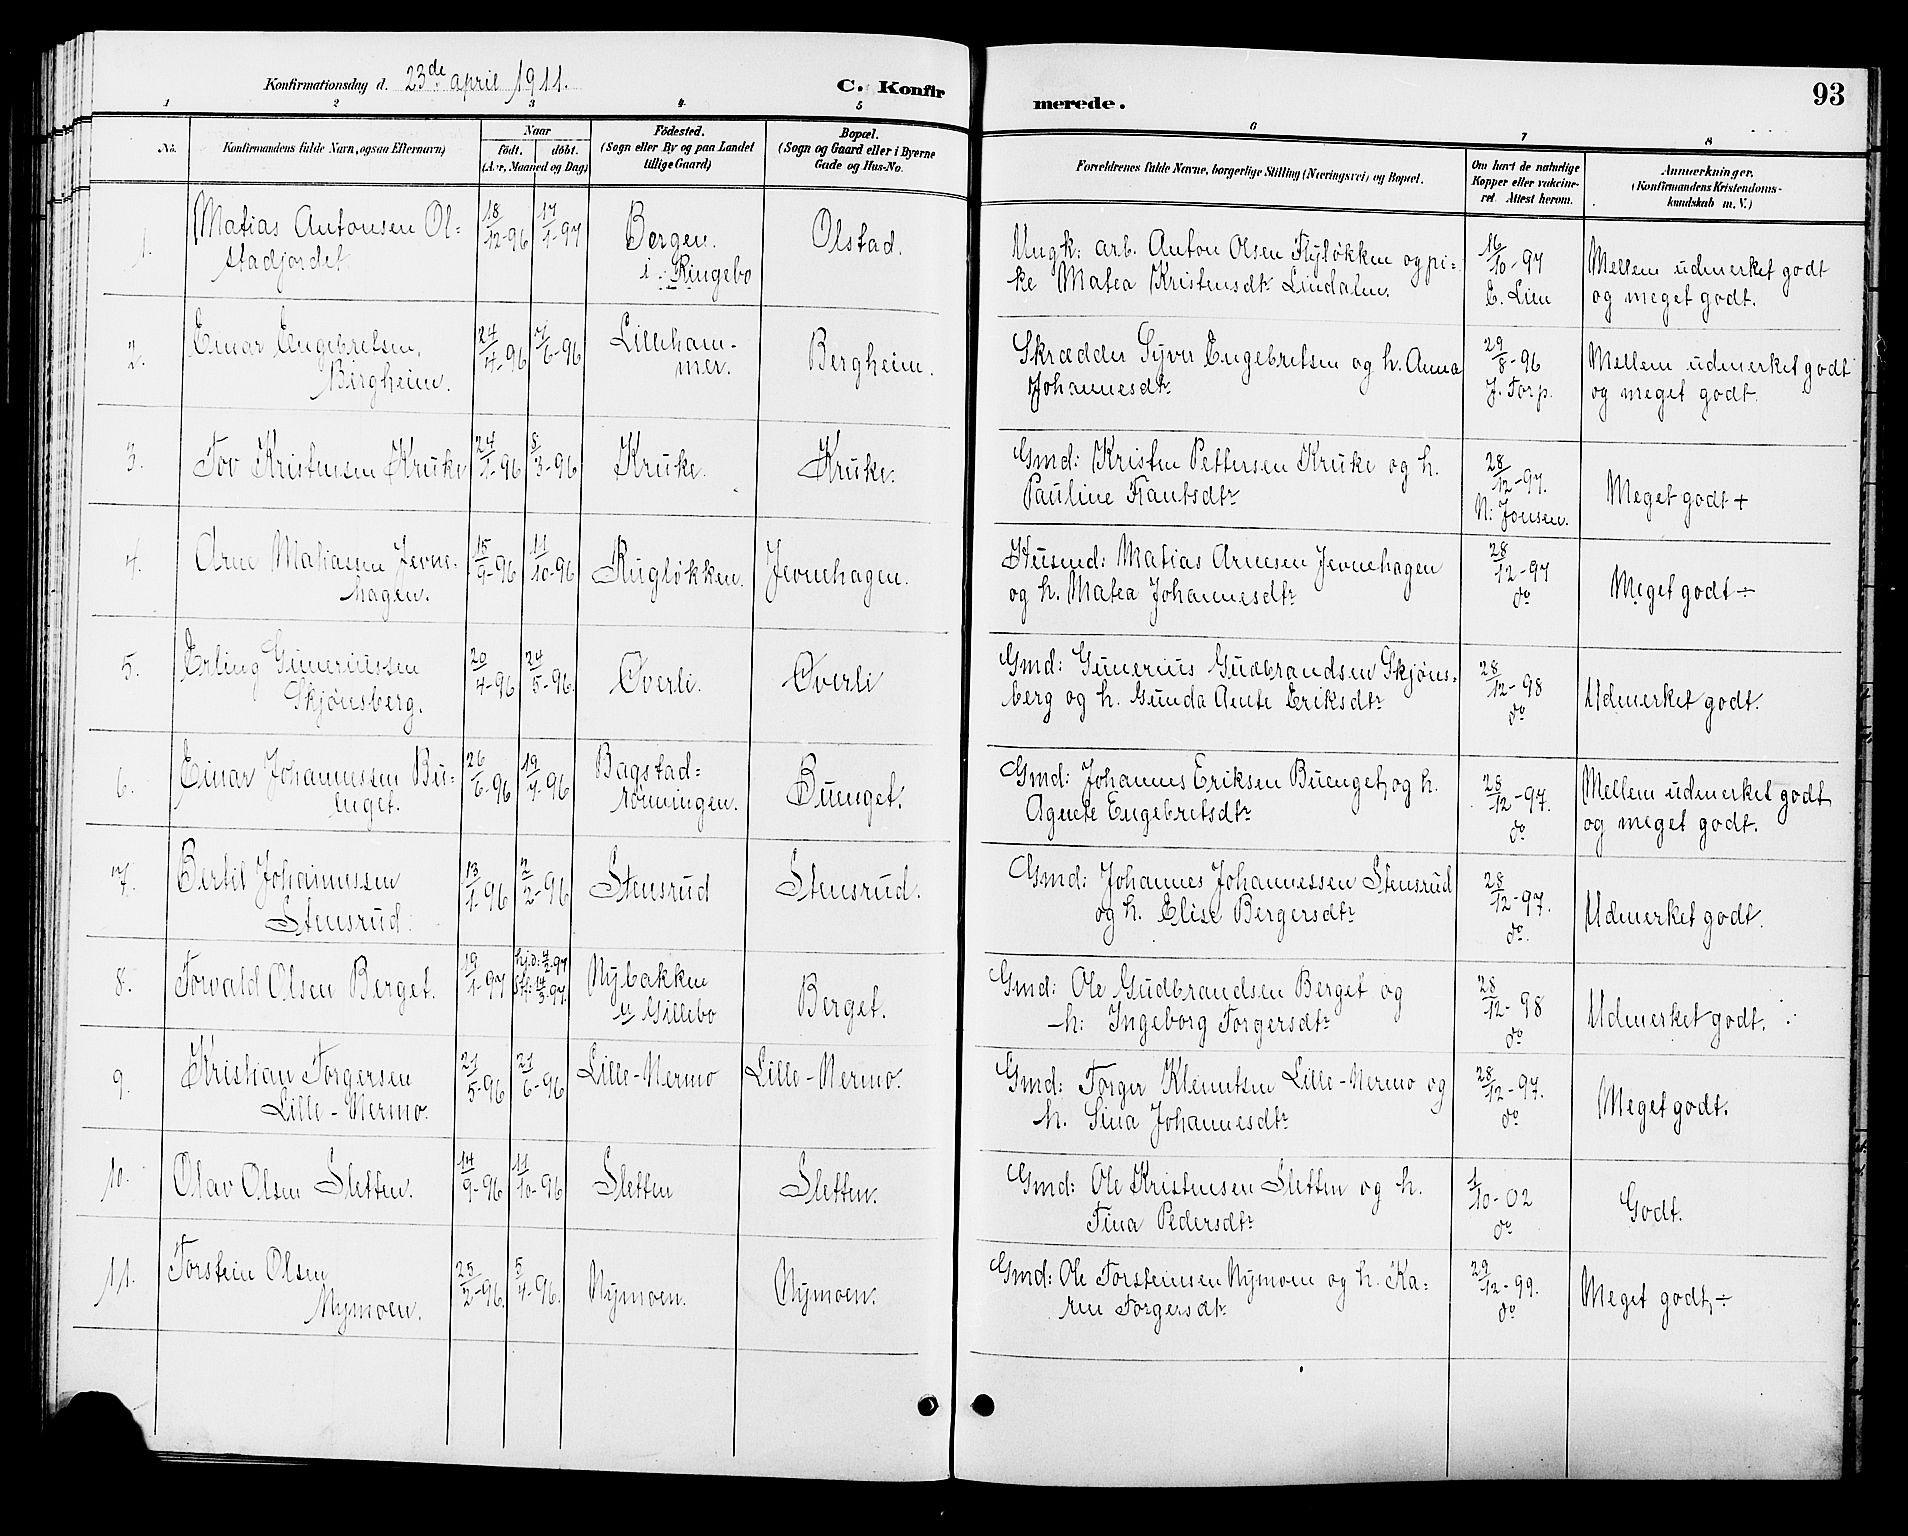 Konfirmationsdag d. 23de april 1911.
C. Konfirmerede.
93
1 2 3 4 5 6 7 8
No.
Konfirmandens fulde Navn, ogsaa Efternavn)
Naar
födt. döbt.
(Aar, Maaned og Dag)
Födested.
(Sogn eller By og paa Landet
tillige Gaard)
Bopæl.
(Sogn og Gaard eller i Byerne
Gade og Hus-No.
Forældrenes fulde Navne, borgerlige Stilling (Næringsvei) og Bopæl.
Om havt de naturlige
Kopper eller vakcine-
ret. Attest herom.
Anmærkninger.
(Konfirmandens Kristendoms-
kundskab m. V.)
1. Matias Antonsen Ol=
stadjordet
18/12-96 17/1-97
Bergen.
i Ringebo
Olstad.
Ungk: arb. Anton Olsen Flyløkken og pi-
ke Matea Kristensdtr Lindalen.
16/10-97
E. Lien
Mellem udmerket godt
og meget godt.
2. Einar Engebretsen
Bergheim.
24/4-96 7/6-96
Lilleham-
mer.
Bergheim.
Skrædder Syver Engebretsen og h. Anna
Johannesdtr
29/8-96
J. Torp.
Mellem udmerket godt
og meget godt.
3. Tov Kristensen Kruke
24/1-96 8/3-96
Kruke.
Kruke.
Gmd: Kristen Pettersen Kruke og h.
Pauline Frantsdtr
28/12-97.
N: Jonsen.
Meget godt +
4. Arne Matiassen Jevne-
hagen.
15/9-96 11/10-96
Rugløkken.
Jevnehagen.
Husmd: Matias Arnesen Jevnehagen
og h. Matea Johannesdtr
28/12-97
do
Meget godt ÷
5. Erling Guneriussen
Skjønsberg.
20/4-96 24/5-96.
Øverli.
Øverli
Gmd: Gunerius Gudbrandsen Skjøns-
berg og h. Gunda Aente Eriksdtr
28/12-98
do
Udmerket godt.
6. Einar Johannessen Bu-
enget.
26/6-96 19/7-96
Bagstad=
rønningen.
Buenget.
Gmd: Johannes Eriksen Buenget, og h.
Agnete Engebretsdtr
28/12-97.
do
Mellem udmerket godt
og meget godt.
7. Bertil Johannessen
Stensrud.
13/1-96 2/2-96
Stensrud
Stensrud.
Gmd: Johannes Johannessen Stensrud
og h. Elise Bergersdtr
28/12-97.
do.
Udmerket godt.
8. Torvald Olsen Berget.
19/1-97 hj.d: 4/2-97
Stf: 14/3-97.
Nybakken
u Gillebo
Berget.
Gmd: Ole Gudbrandsen Berget og
h: Ingeborg Torgersdtr
28/12-98
do
Udmerket godt.
9. Kristian Torgersen
Lille-Nermo.
21/5-96 21/6-96
Lille-Nermo
Lille-Nermo.
Gmd: Torger Klemetsen Lille-Nermo og
h. Sina Johannesdtr
28/12-97.
do
Meget godt.
10. Olav Olsen Sletten.
14/9-96 11/10-96
Sletten
Sletten.
Gmd: Ole Kristensen Sletten og h.
Tina Pedersdtr
1/10-02
do
Godt.
11. Torstein Olsen
Nymoen.
25/2-96. 5/4-96.
Nymoen.
Nymoen.
Gmd: Ole Torsteinsen Nymoen og h. Ka-
ren Torgersdtr
29/12-99.
do
Meget godt, ÷